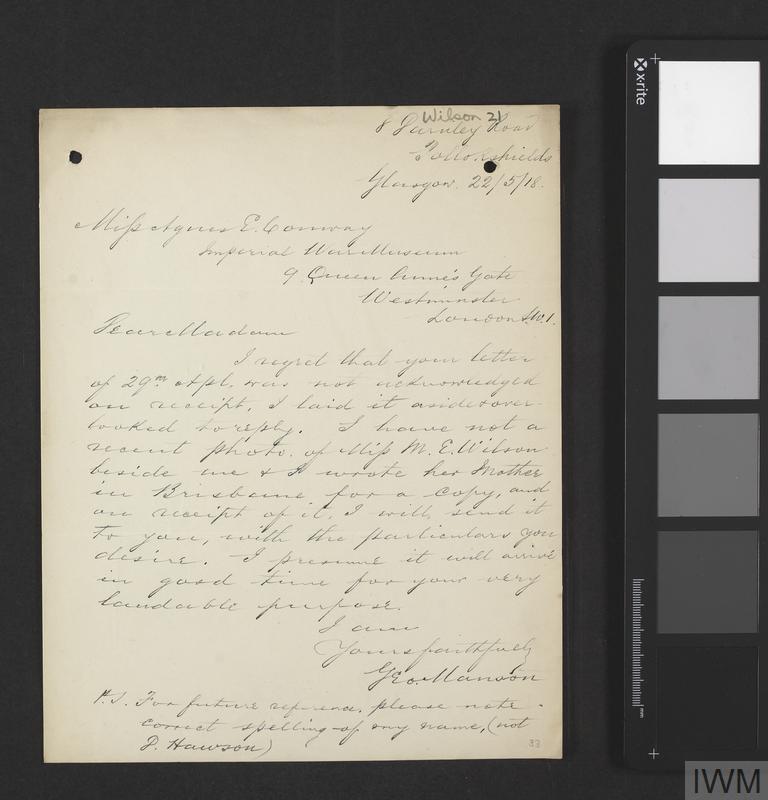 Wilson 21
8 Darnley Road
Pollokshields
Glasgow. 22/5/18.
Miss Agnes E. Conway
Imperial War Museum
9 Queen Anne's Gate
Westminster
London S.W.1.
Dear Madam
I regret that your letter
of 29th Apl. was not acknowledged
on receipt, I laid it aside & over-
looked to reply. I have not a
recent photo. of Miss M. E. Wilson
beside me & I wrote her Mother
in Brisbane for a copy, and
on receipt of it, I will send it
to you, with the particulars you
desire. I presume it will arrive
in good time for your very
laudable purpose.
I am
Yours faithfully
Geo. Manson
P.S. For future reference, please note
correct spelling of my name, (not
D. Hawson)
33
x-rite
mm
IWM